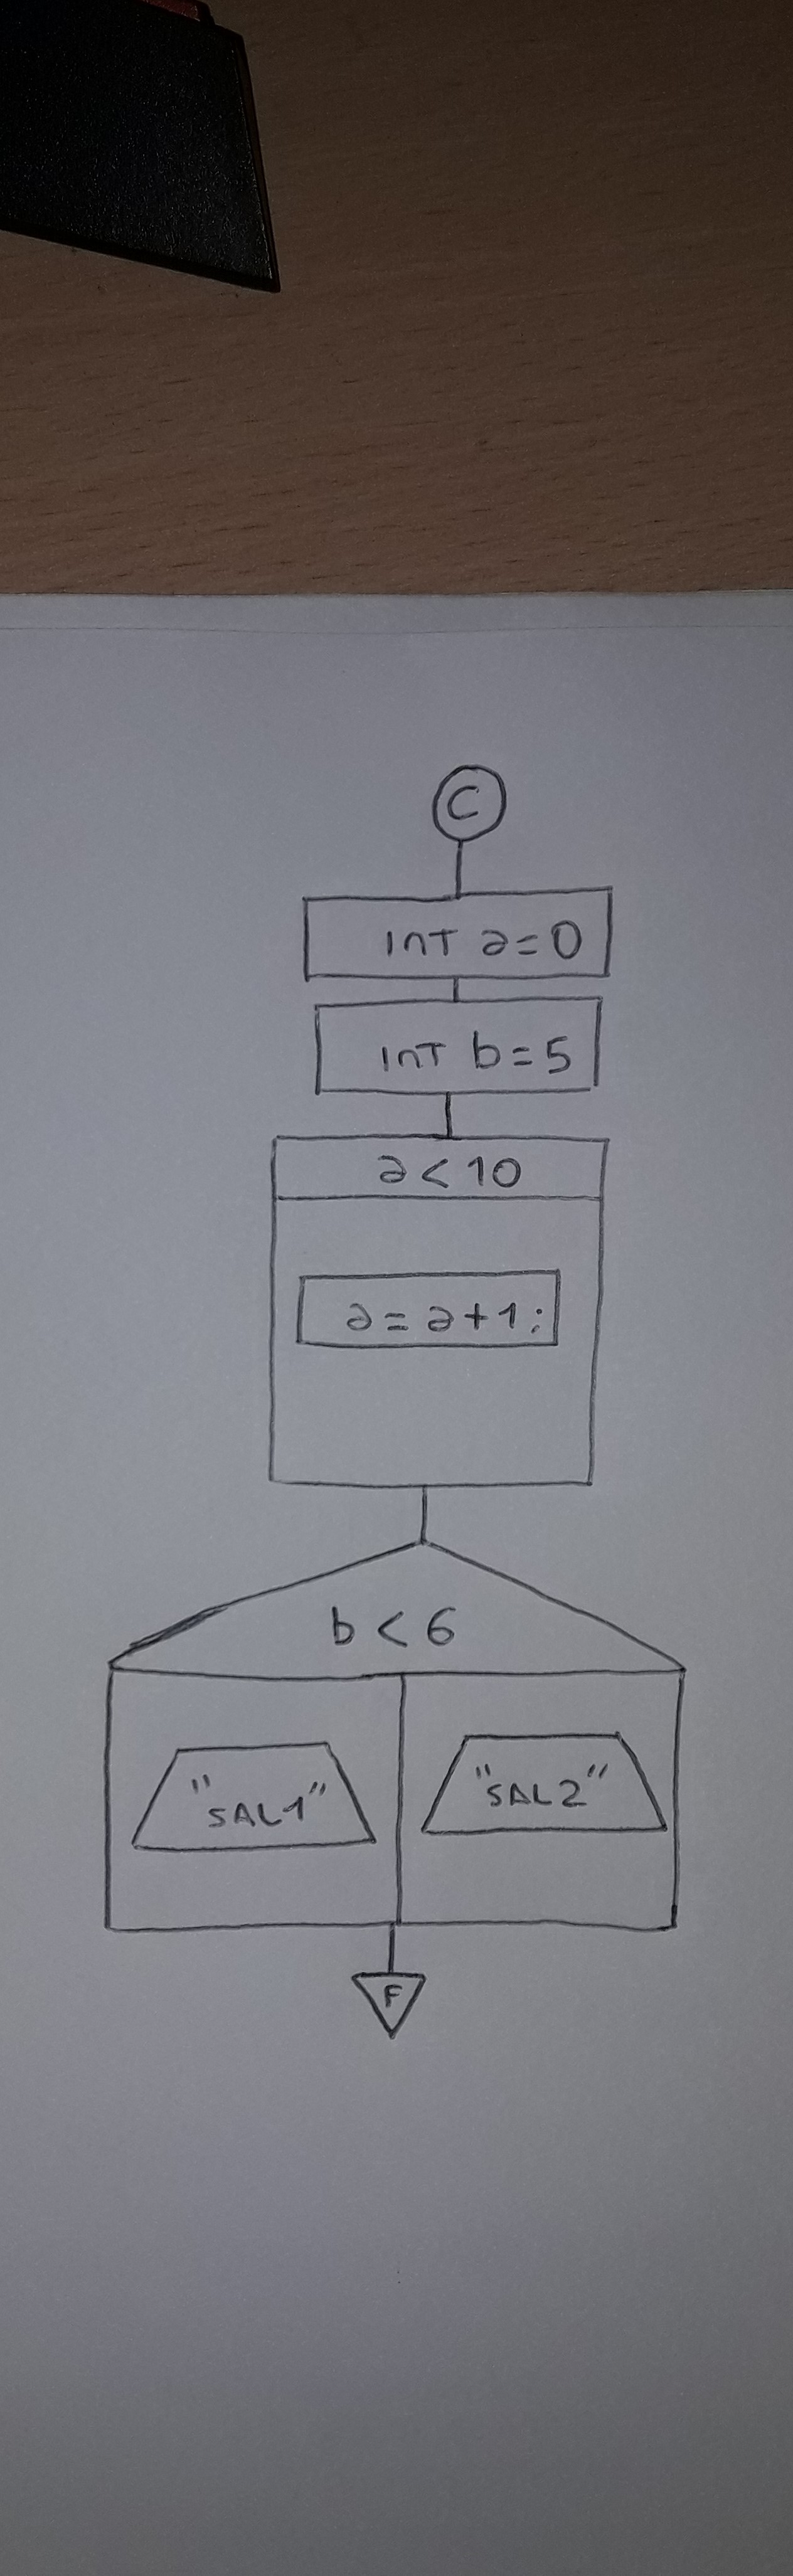 C
int a=0
int b=5
a<10
a=a+1;
b<6
"SAL1" "SAL2"
F